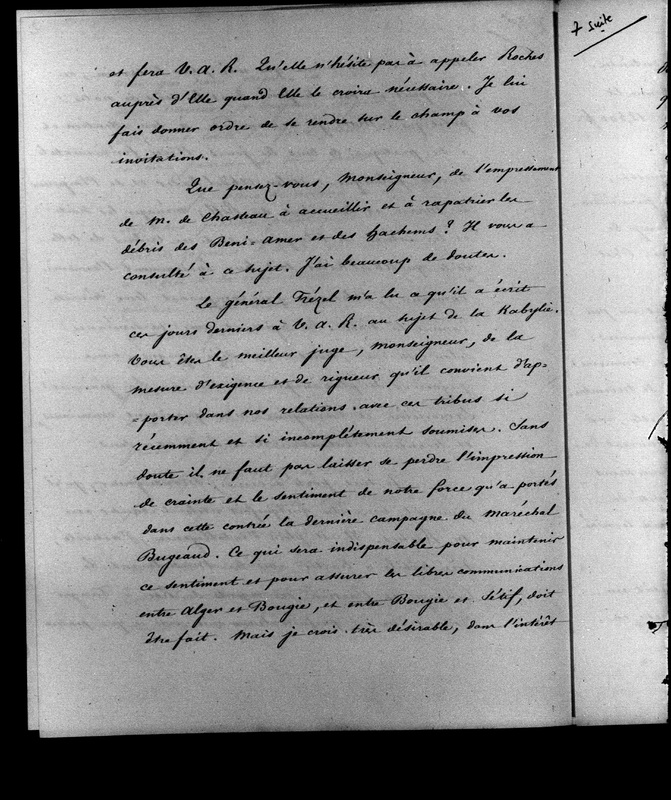 7 suite
et fera V. A. R. Qu'elle n'hésite pas à appeler Roches
auprès d'Elle quand Elle le croira nécessaire. Je lui
fais donner ordre de se rendre sur le champ à vos
invitations.
Que pensez-vous, Monseigneur, de l'empressement
de M. de Chasteau à accueillir et à rapatrier les
débris des Beni-Amer et des Hachems? Il vous a
consulté à ce sujet. J'ai beaucoup de doutes.
Le général Trézel m'a lu ce qu'il a écrit
ces jours derniers à V. A. R. au sujet de la Kabylie.
Vous êtes le meilleur juge, Monseigneur, de la
mesure d'exigence et de rigueur qu'il convient d'ap-
-porter dans nos relations avec ces tribus si
récemment et si incomplétement soumises. Sans
doute il ne faut pas laisser se perdre l'impression
de crainte et le sentiment de notre force qu'a portés
dans cette contrée la dernière campagne du Maréchal
Bugeaud. Ce qui sera indispensable pour maintenir
ce sentiment et pour assurer les libres communications
entre Alger et Bougie, et entre Bougie et Sétif, doit
être fait. Mais je crois très désirable, dans l'intérêt